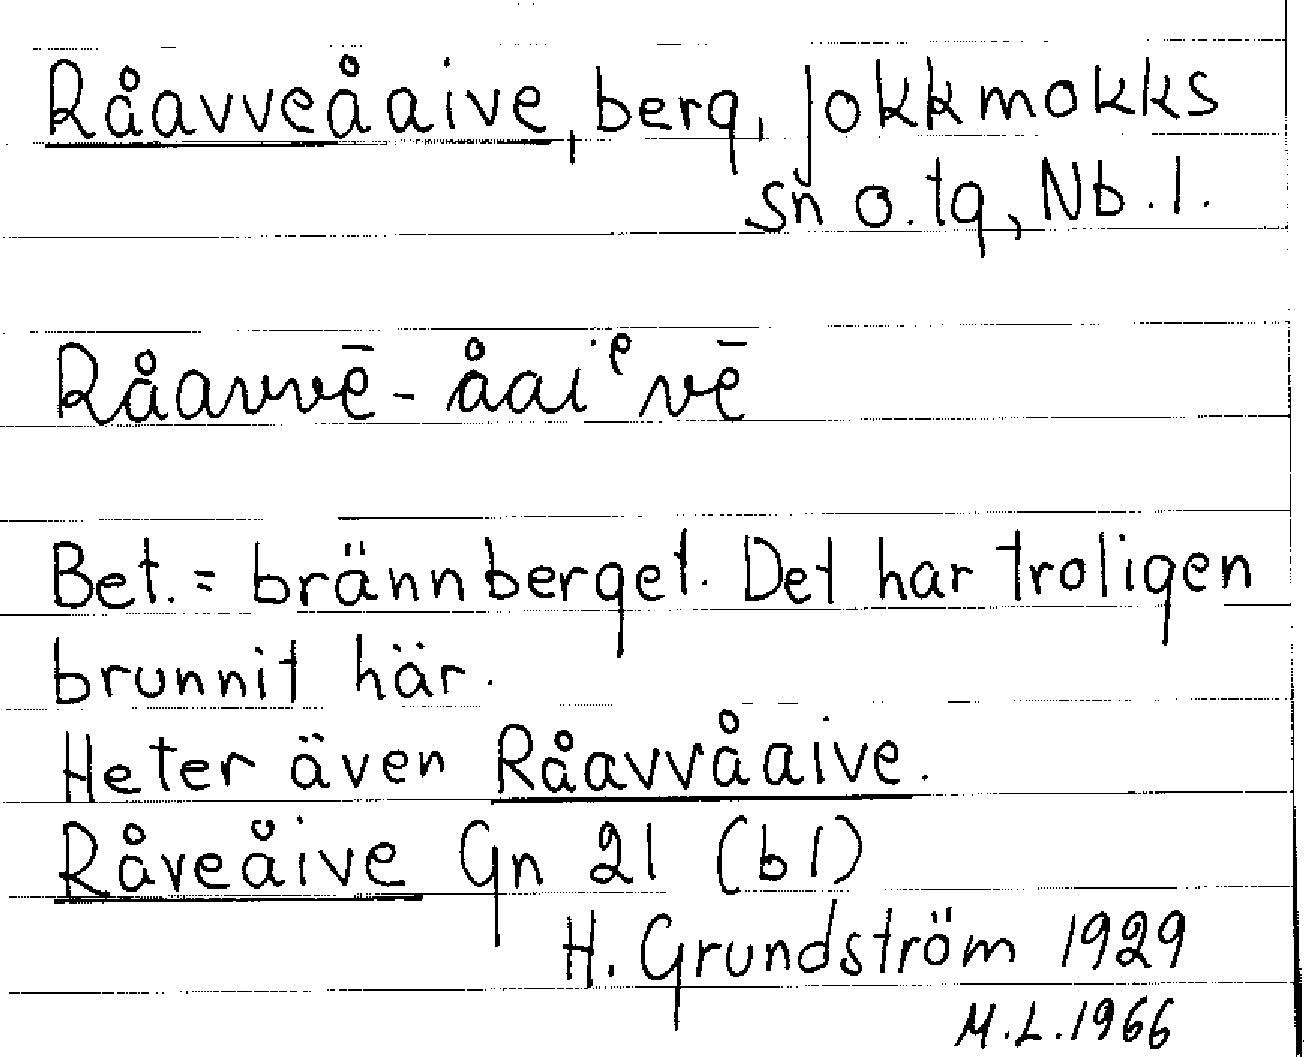 Råavveåaive, berg, Jokkmokks
sn o. tg, Nb. l.
Råavvē - åaiᵉvē
Bet. = brännberget. Det har troligen
brunnit här.
Heter även Råavvåaive.
Råveåive Gn 21 (bl)
H. Grundström 1929
M.L. 1966